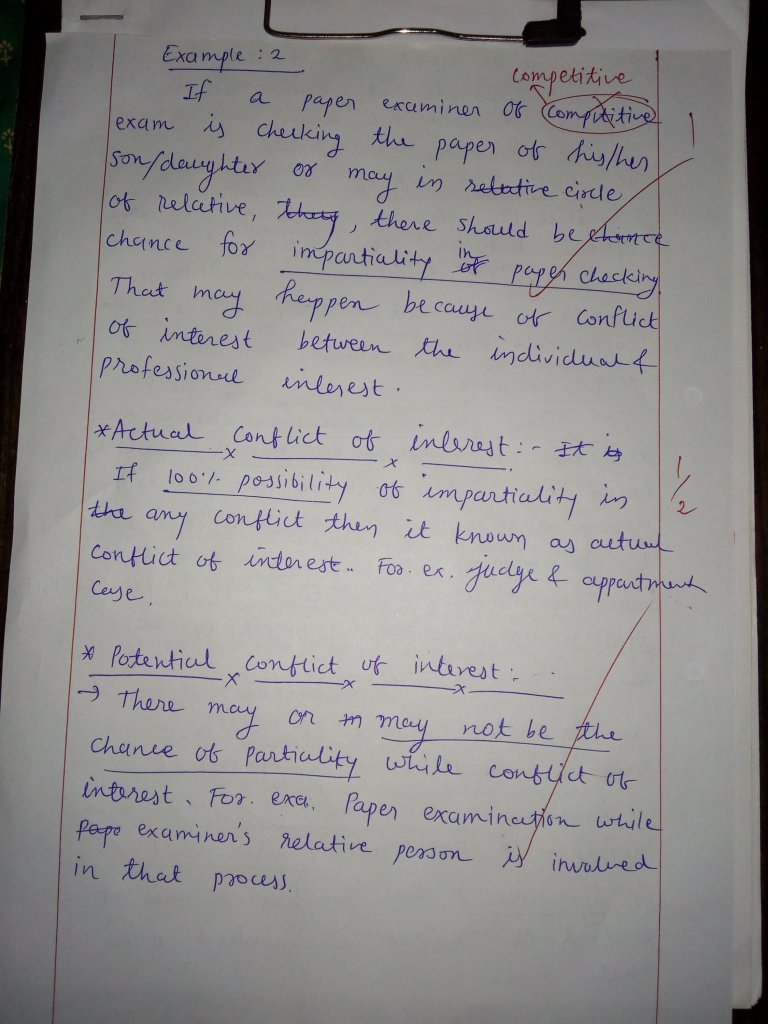 Example : 2
competitive
If a paper examiner of competitive
exam is checking the paper of his/her
son/daughter or may in relative circle
of relative, they, there should be chance
chance for impartiality of in paper checking
That may happen because of conflict
of interest between the individual &
professional interest.
1
*Actual conflict of interest:- It is
If 100% possibility of impartiality in
the any conflict then it known as actual
conflict of interest.. For. ex. judge & appartment
case.
1/2
* Potential conflict of interest:
→ There may or m may not be the
chance of partiality while conflict of
interest. For. exa. Paper examination while
pape examiner's relative person is involved
in that process.